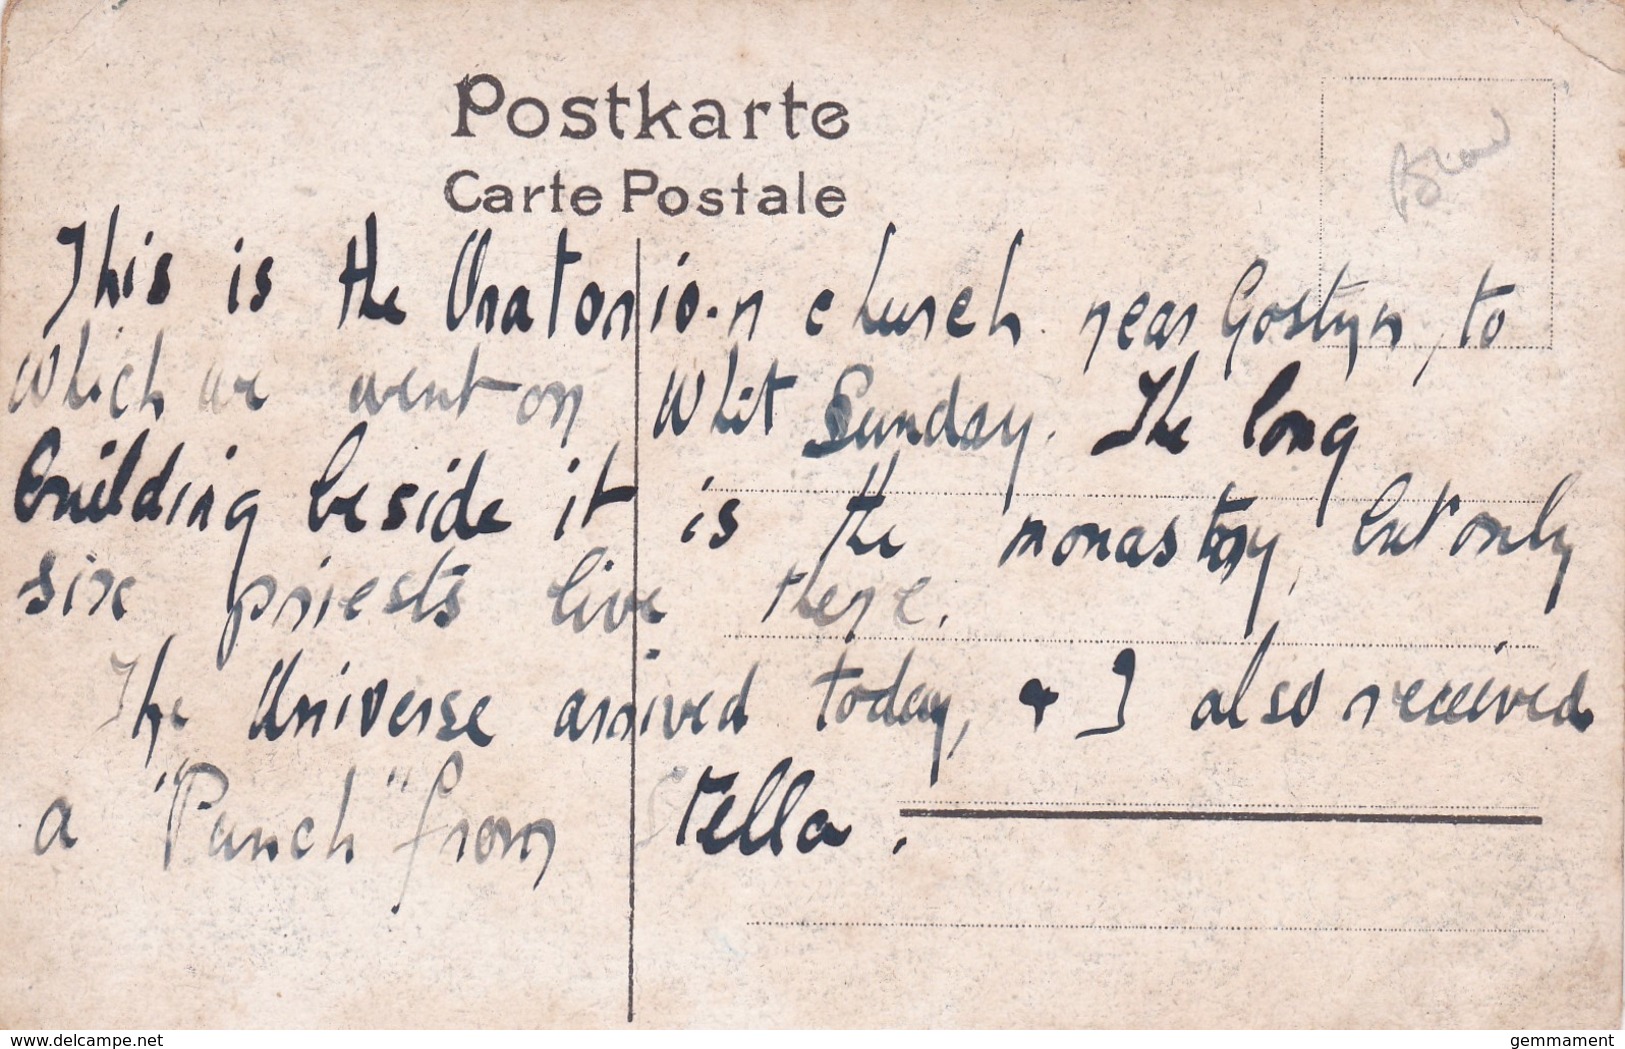 Postkarte
Carte Postale
This is the Oratorio.n church near Gostyn, to
which we went on Whit Sunday. The long
building beside it is the monastry, but only
six priests live there.
The Universe arrived today, & I also received
a "Punch" from Stella.
delcampe.net
gemmament